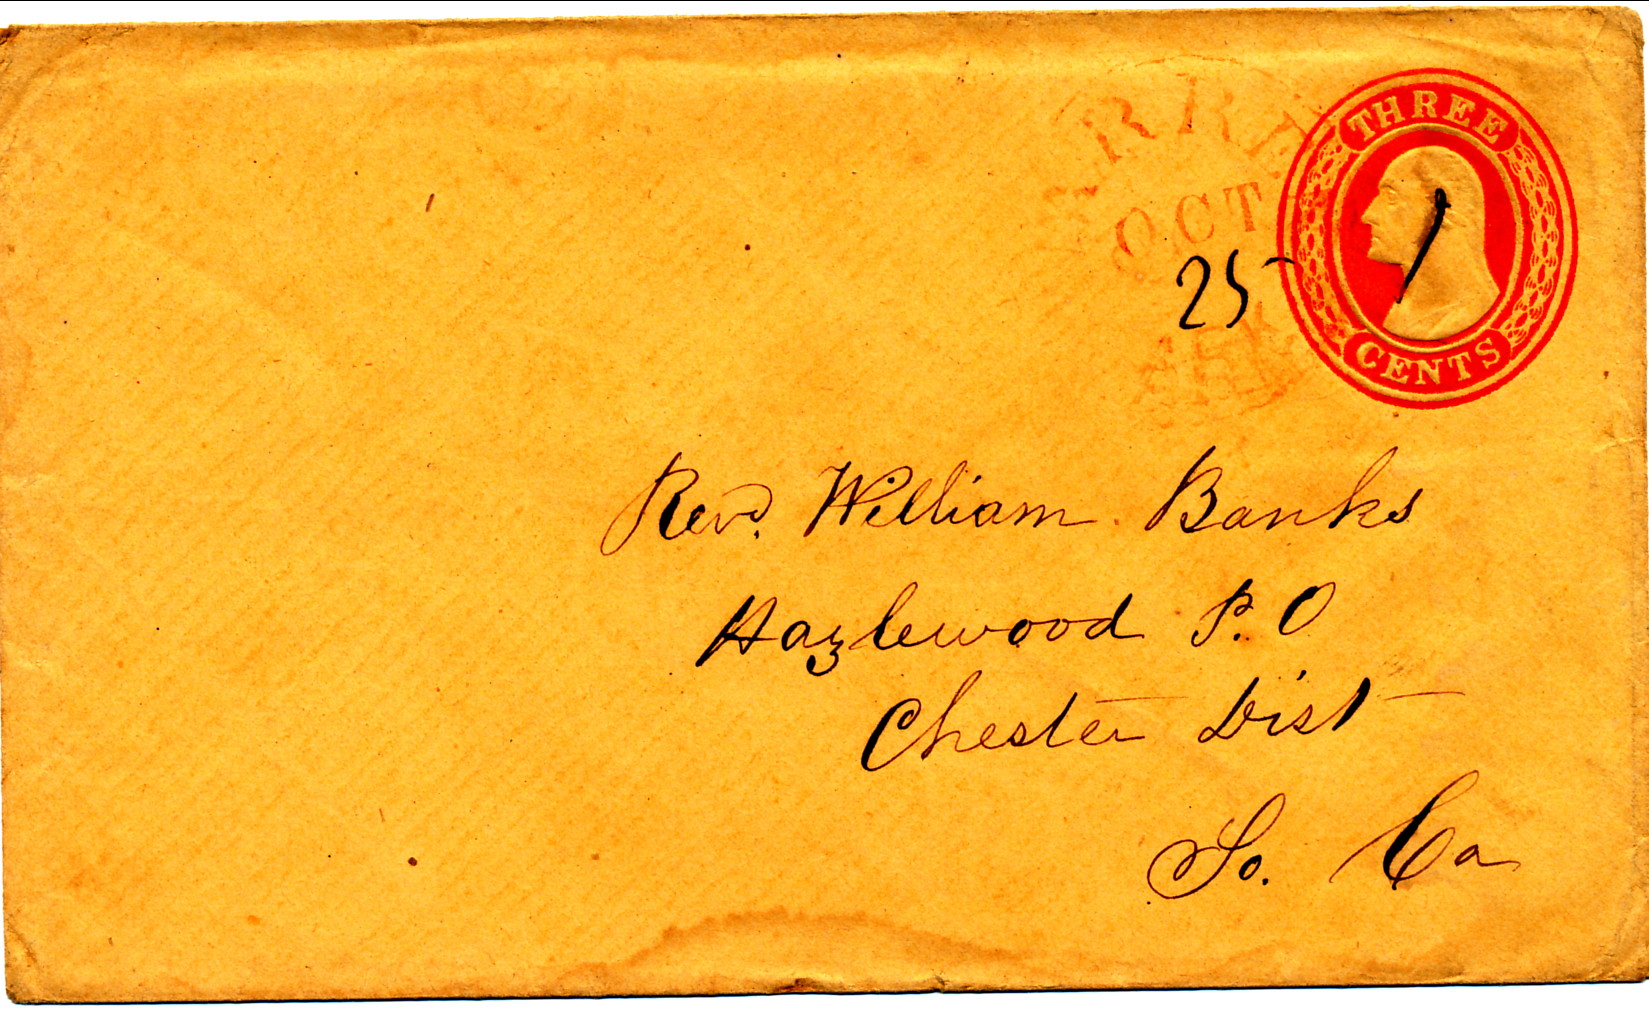 THREE
OCT
25
CENTS
Revd. William Banks
Hazlewood P. O
Chester Dist
So. Ca